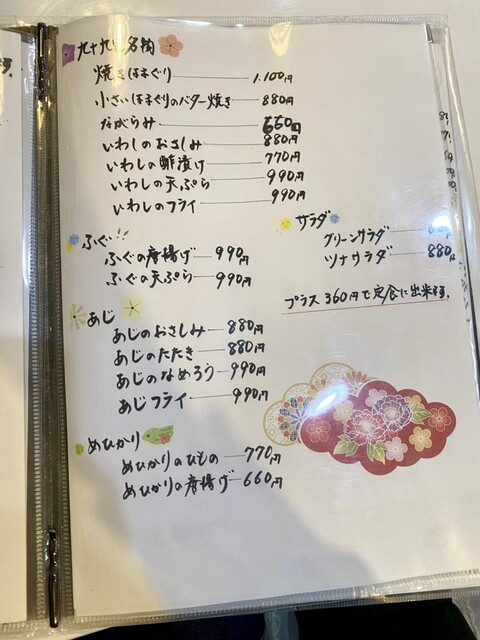 九十九里名物
焼きはまぐり 1,100円
小さいはまぐりのバター焼き 880円
ながらみ 660円
いわしのおさしみ 880円
いわしの酢漬け 770円
いわしの天ぷら 990円
いわしのフライ 990円
サラダ
グリーンサラダ
ツナサラダ 880円
プラス360円で定食に出来ます。
ふぐ
ふぐの唐揚げ 990円
ふぐの天ぷら 990円
あじ
あじのおさしみ 880円
あじのたたき 880円
あじのなめろう 990円
あじフライ 990円
めひかり
めひかりのひもの 770円
めひかりの唐揚げ 660円